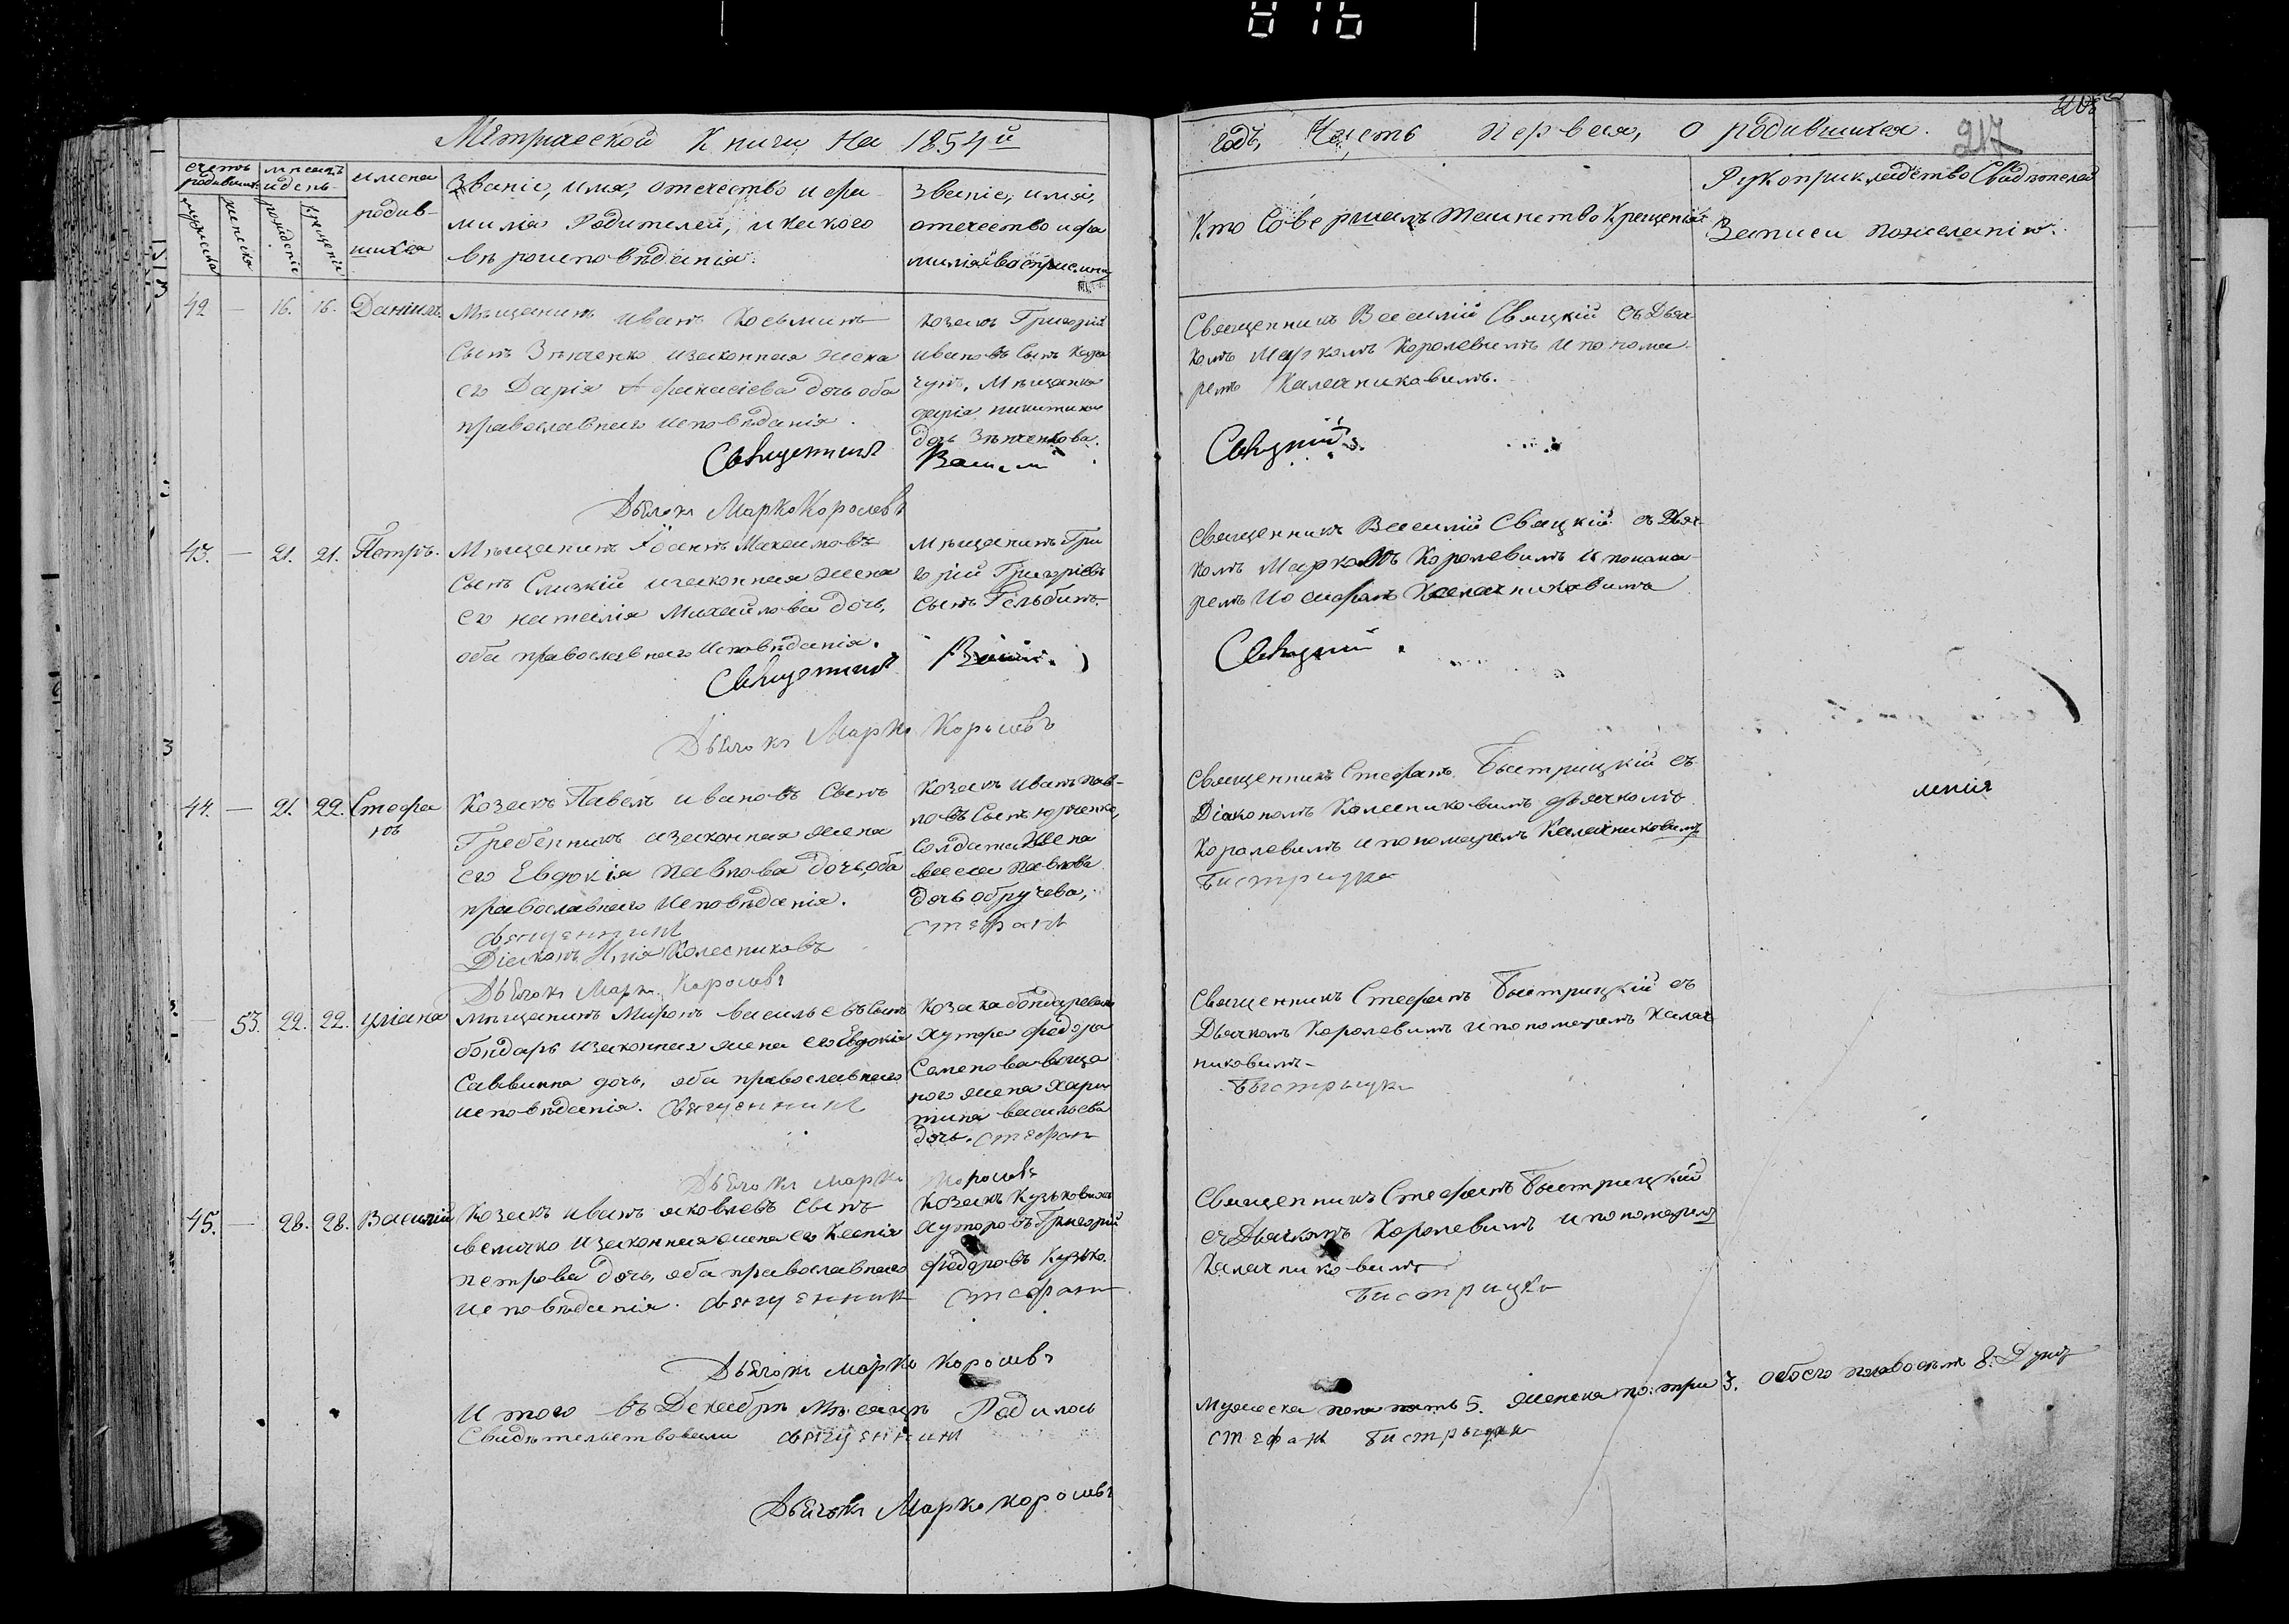 816
Метрической Книги на 1854й
годъ, Часть первая, о родившихся.
217
счетъ родившихся
мужеска
женска
мѣсяцъ и день
рожденія
крещенія
имена
родив-
шихся
Званіе, имя, отечество и фа
милія Родителей, и какого
вѣроисповѣданія.
Званіе, имя,
отечество и фа
милія воспріемни
Кто Совершилъ таинство Крещенія
Рукоприкладство Свидѣтелей
Записи по желанію.
42 — 16. 16. Даніилъ.
Мѣщанинъ иванъ Косьминъ
Сынъ Зѣнченко изаконная жена
его Дарія Афанасіева дочь оба
православнаго исповѣданія.
Священникъ
Дьячокъ Марко Королевъ
козакъ Григорій
ивановъ Сынъ
Мѣщанка
дарія никитина
дочь Зѣнченкова.
Василій
Священникъ Василій Свяцкій съ Дьяч
комъ Маркомъ Королевымъ и понома
ремъ Калачниковымъ.
Свяцкій
43. — 21. 21. Петръ.
Мѣщанинъ Іоаннъ Максимовъ
Сынъ Слизкій изаконная жена
его наталія Михайлова дочь,
оба православнаго исповѣданія.
Священникъ
Дьячокъ Марко Королевъ
Мѣщанинъ Гри
горій Григоріевъ
сынъ Гельбинъ.
Василій
Священникъ Василій Свяцкій съ Дьяч
комъ Маркомъ Королевымъ и понома
ремъ Иосифомъ Калачниковымъ
Свяцкій
44. — 21. 22. Стефа
нъ
Козакъ Павелъ ивановъ Сынъ
Гребенникъ изаконная жена
его Евдокія павлова дочь, оба
православнаго исповѣданія.
священникъ
Діаконъ Илія Колесниковъ
Дьячокъ Марко Королевъ
Козакъ иванъ пав-
ловъ Сынъ юрченко,
Солдатка жена
васса павлова
дочь обручева,
стефанъ
Священникъ Стефанъ Быстрицкій съ
Діакономъ Колесниковымъ дьячкомъ
Королевымъ и пономаремъ Калачниковымъ
Бистрицки
— 53. 22. 22. уліана
Мѣщанинъ Миронъ васильевъ сынъ
бондарь изаконная жена его Евдокія
Саввина дочь, оба православнаго
исповѣданія. священникъ
Дьячокъ Марко Королевъ
козака бондарева
Хутора федора
Семенова
ного жена хари
тина васильева
дочь. стефанъ
Священникъ Стефанъ Быстрицкій съ
Дьячкомъ Королевымъ и пономаремъ Калач
никовымъ
Быстрыцки
45. — 28. 28. Василій
Козакъ иванъ яковлевъ сынъ
величко изаконная жена его Ксенія
петрова дочь, оба православнаго
исповѣданія. священникъ
Дьячокъ Марко Королевъ
козакъ Кузьковыхъ
хуторовъ Григорій
федоровъ Кузько.
стефанъ
Священникъ Стефанъ Быстрицкій
съ Дьячкомъ Королевымъ и пономаремъ
Калачниковымъ
Бистрицки
Итого въ Декабрѣ мѣсяцѣ Родилось
Мужеска пола пять 5. женска по: три 3. обоего пола восемь 8. Душъ
Свидѣтельствовали священникъ
Стефанъ Бистрыцки
Дьячокъ Марко королевъ